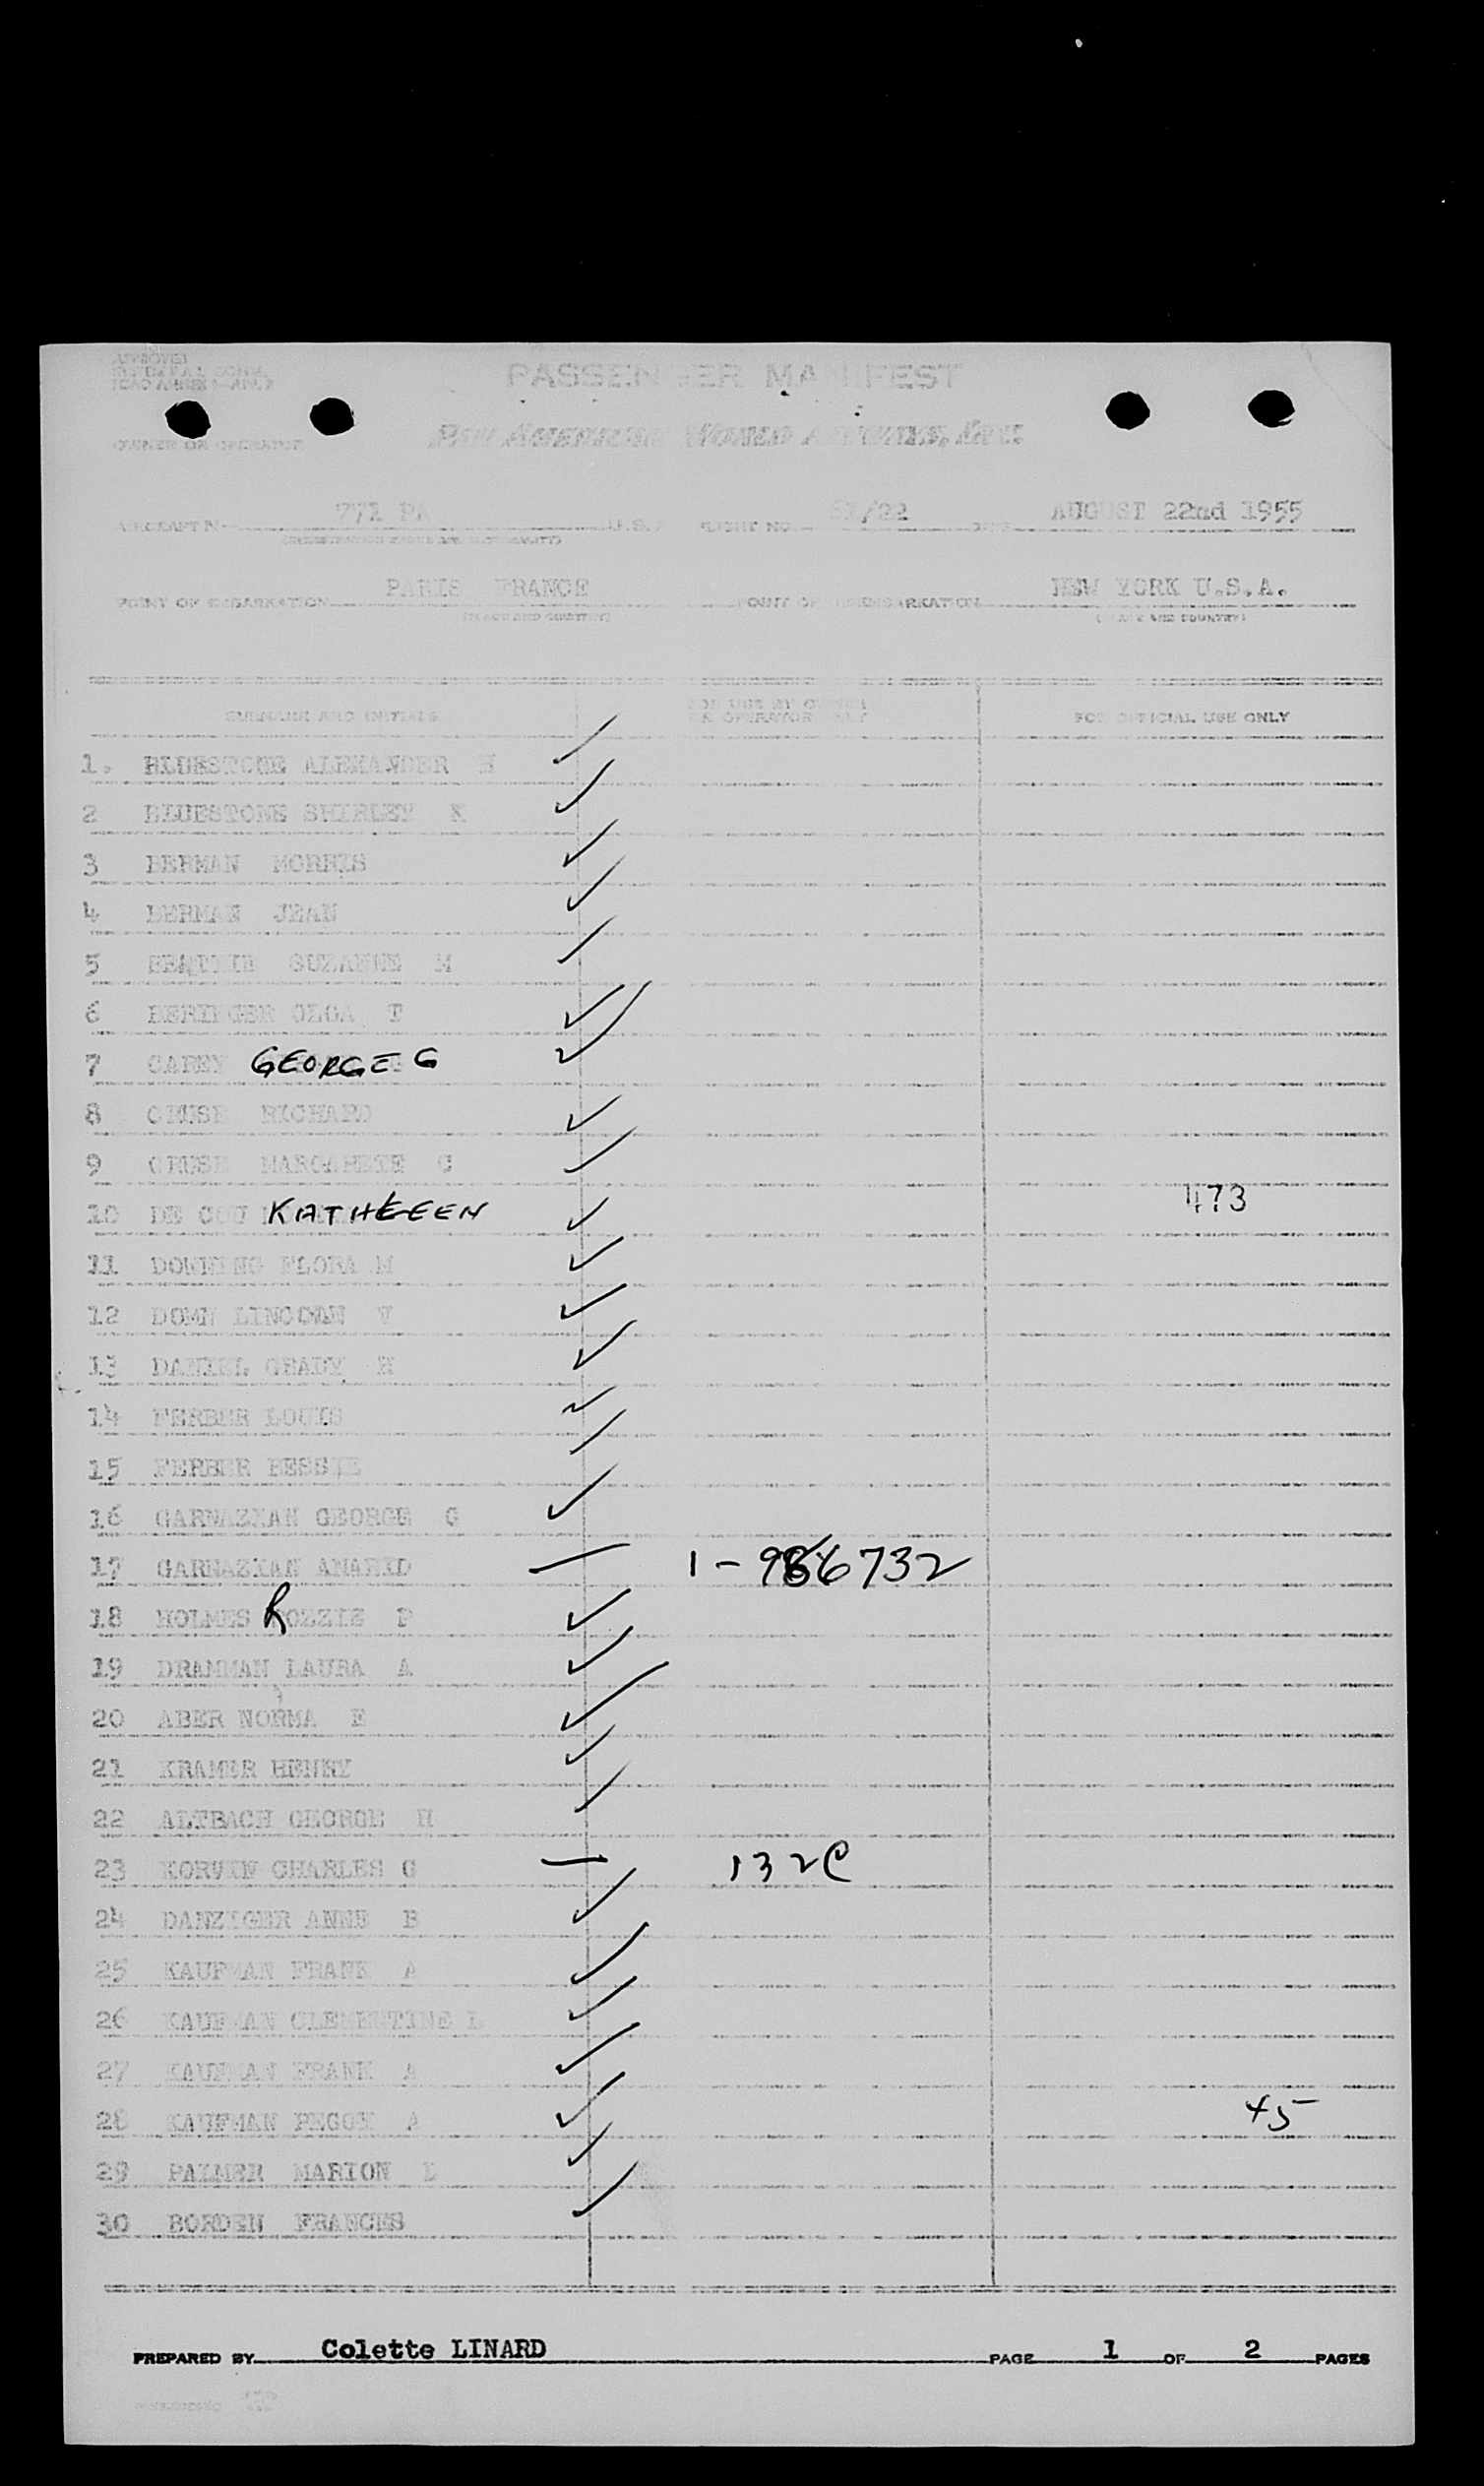 PASSENGER MANIFEST
OWNER OR OPERATOR
PAN AMERICAN WORLD AIRWAYS, INC.
AIRCRAFT 771 PA U.S. FLIGHT NO. /22 AUGUST 22nd 1955
POINT OF EMBARKATION PARIS FRANCE POINT OF DISEMBARKATION NEW YORK U.S.A.
(PLACE AND COUNTRY) (PLACE AND COUNTRY)
SURNAME AND INITIALS FOR USE BY OWNER OR OPERATOR ONLY FOR OFFICIAL USE ONLY
1. BLUESTONE ALEXANDER ✓
2 BLUESTONE SHIRLEY ✓
3 BERMAN MORRIS ✓
4 BERMAN JEAN ✓
5 BEATTIE SUZANNE M ✓
6 BERINGER OLGA T ✓
7 CAREY GEORGE G ✓
8 CRUSE RICHARD ✓
9 CRUSE MARGARETE C ✓
10 DE COU KATHLEEN ✓ 473
11 DOWNING FLORA M ✓
12 LINCOLN ✓
13 DANIEL GRADY H ✓
14 FERBER LOUIS ✓
15 FERBER BESSIE ✓
16 GARNAZIAN GEORGE G ✓
17 GARNAZIAN ANAHID — 1-986732
18 HOLMES ROZZIE P ✓
19 DRAMMAN LAURA A ✓
20 ABER NORMA E ✓
21 KRAMER HENRY ✓
22 ALTBACH GEORGE H ✓
23 KORVIN CHARLES G — 132C
24 DANZIGER ANNE B ✓
25 KAUFMAN FRANK A ✓
26 KAUFMAN CLEMENTINE L ✓
27 KAUFMAN FRANK A ✓
28 KAUFMAN PEGGY A ✓ 45
29 PALMER MARION L ✓
30 BORDEN FRANCES ✓
PREPARED BY Colette LINARD PAGE 1 OF 2 PAGES